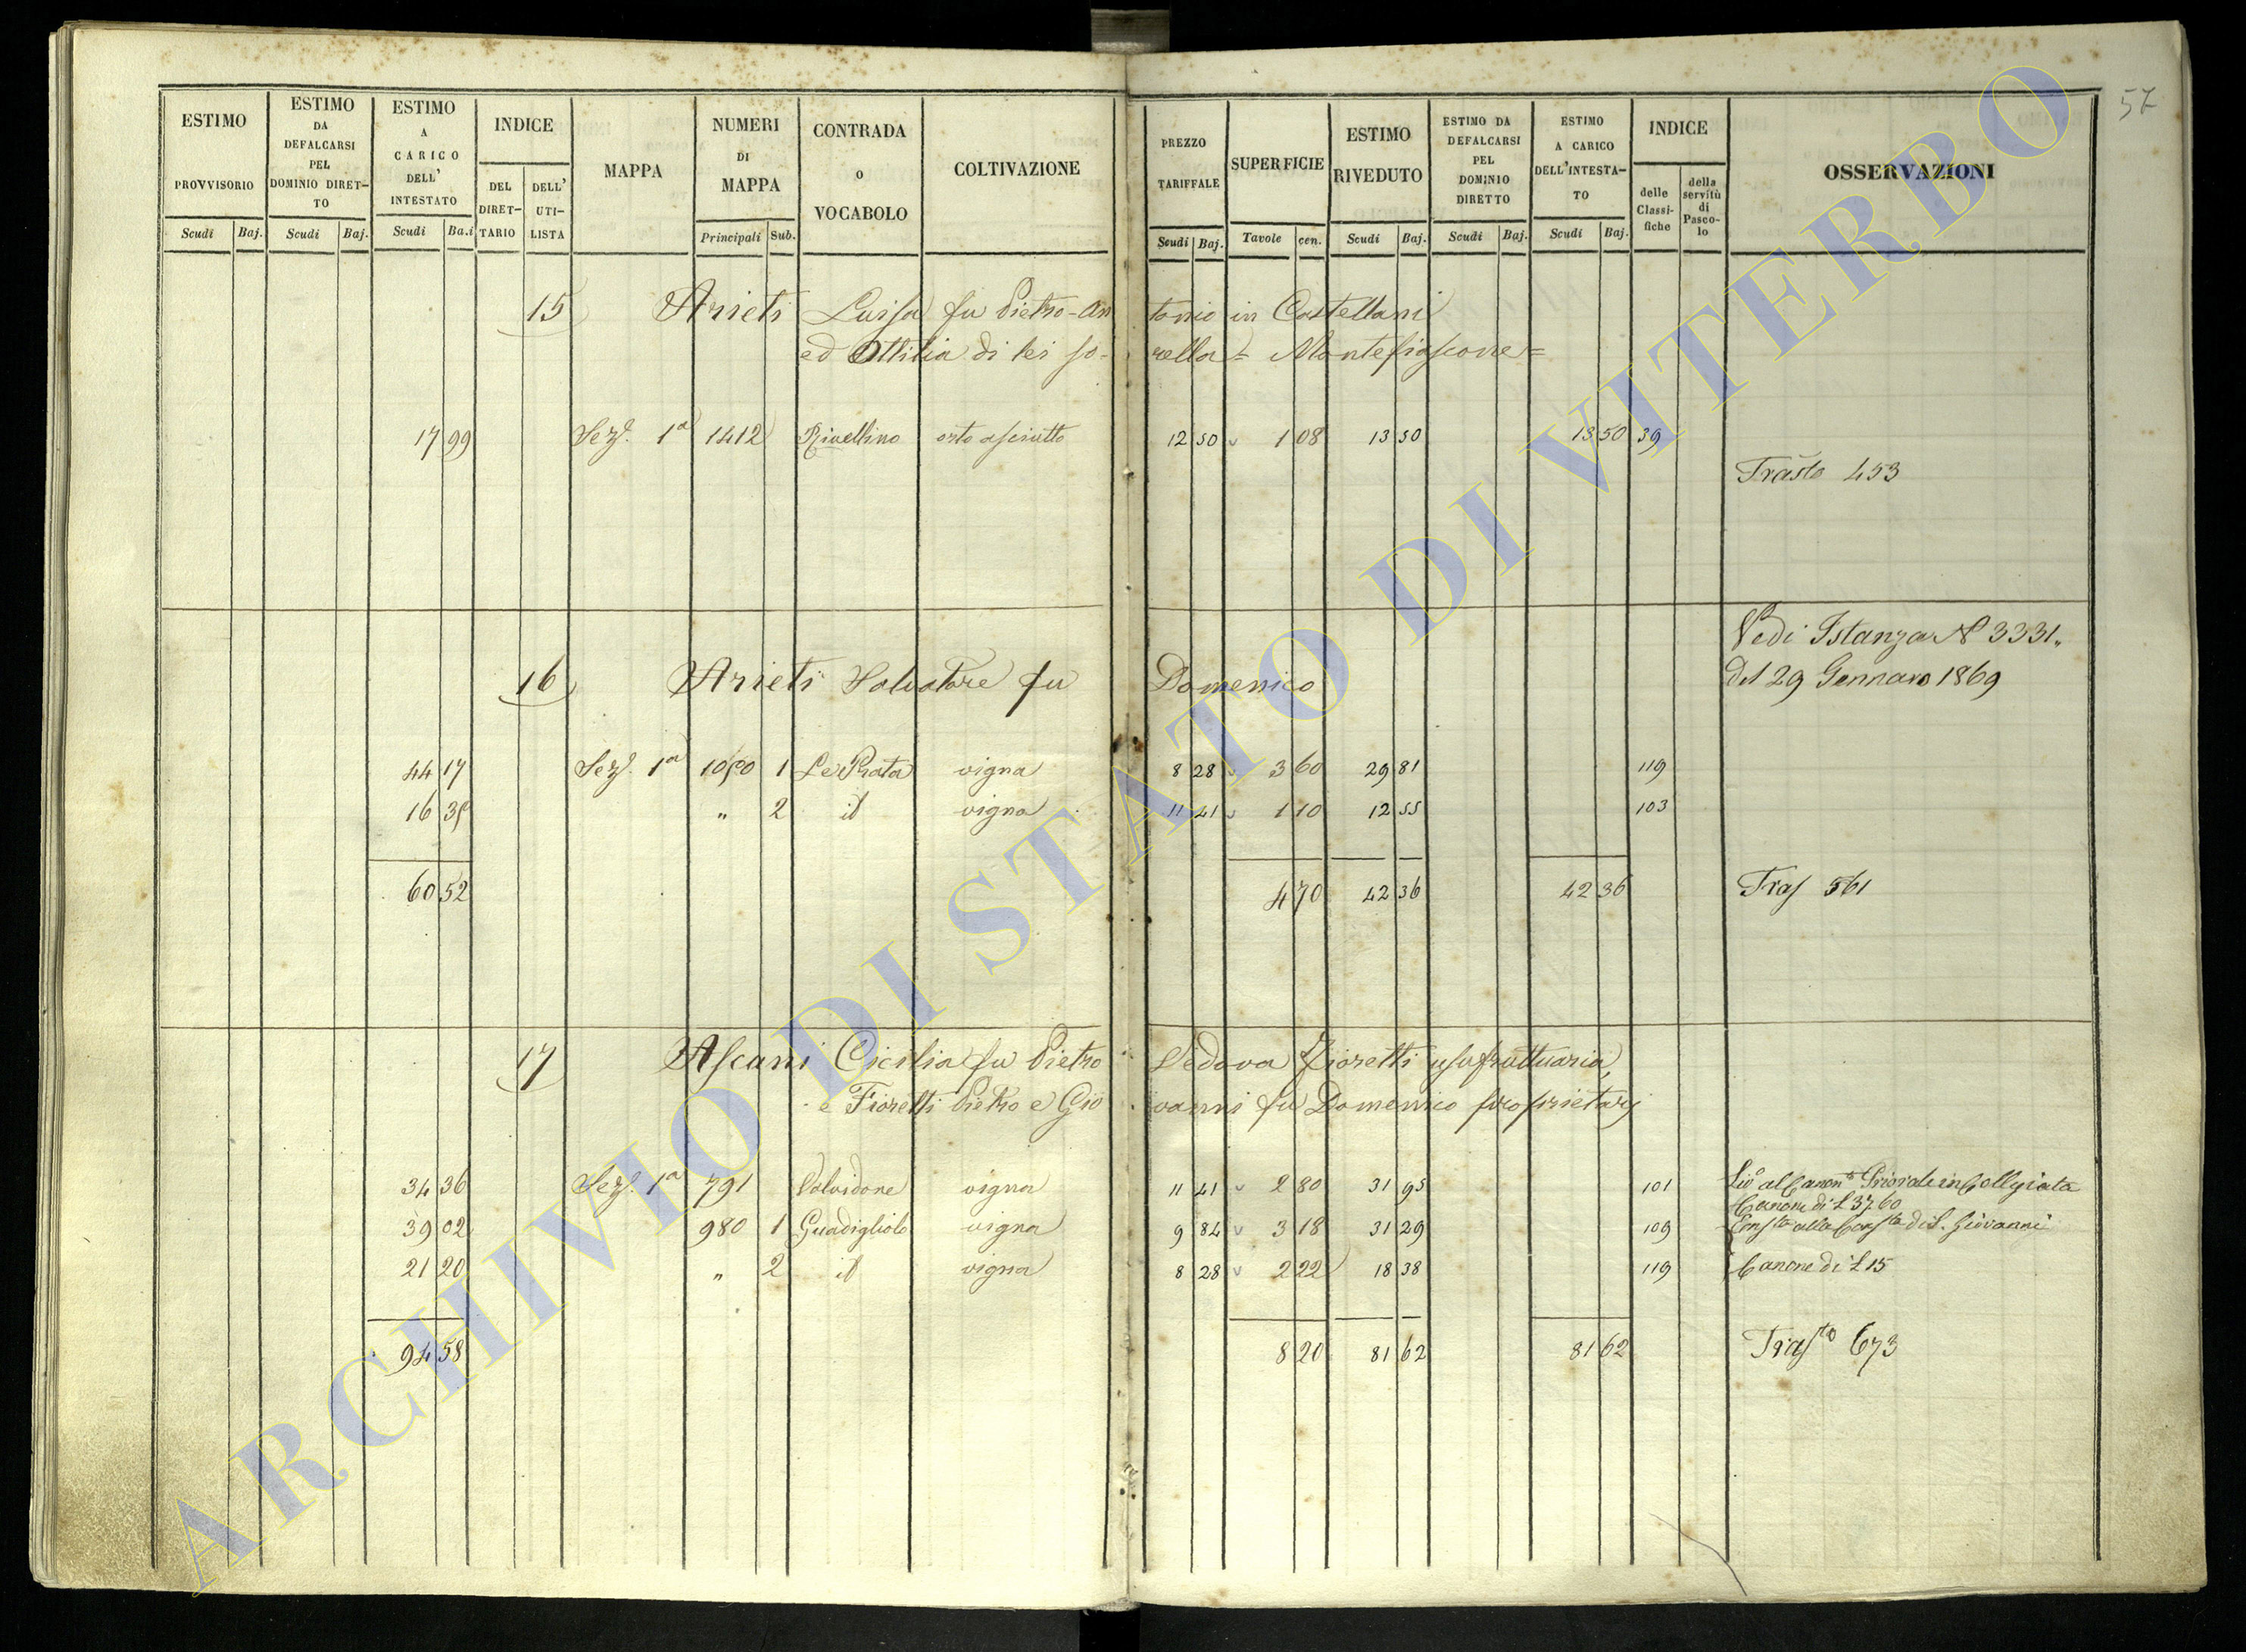 57
ESTIMO PROVVISORIO
ESTIMO DA DEFALCARSI PEL DOMINIO DIRET-TO
ESTIMO A CARICO DELL' INTESTATO
INDICE
DEL DIRET-TARIO
DELL' UTI-LISTA
MAPPA
NUMERI DI MAPPA
CONTRADA O VOCABOLO
COLTIVAZIONE
PREZZO TARIFFALE
SUPERFICIE
ESTIMO RIVEDUTO
ESTIMO DA DEFALCARSI PEL DOMINIO DIRETTO
ESTIMO A CARICO DELL'INTESTA-TO
INDICE
delle Classi-fiche
della servitù di Pasco-lo
OSSERVAZIONI
Scudi Baj. Scudi Baj. Scudi Ba.i Principali Sub. Scudi Baj. Tavole cen. Scudi Baj. Scudi Baj. Scudi Baj.
15 Arieti Luisa fu Pietro-Antonio in Castellani
ed Ottilia di lei so-rella = Montefiascone =
17 99 Sez.e 1a 1412 Rivellino orto asciutto 12 50 1 08 13 50 13 50 39
Trasto 453
Vedi Istanza N 3331
del 29 Gennaro 1869
16 Arieti Salvatore fu Domenico
44 17 Sez.e 1a 1 Le Prata vigna 8 28 3 60 29 81 119
16 35 " 2 id vigna 11 41 1 10 12 55 103
60 52 4 70 42 36 42 36 Tras 561
17 Ascani Cicilia fu Pietro Vedova Fioretti usufruttuaria,
e Fioretti Pietro e Giovanni fu Domenico proprietarj
34 36 Sez.e 1a 791 Valvidone vigna 11 41 2 80 31 95 101 al Canonto Priorale in Collegiata
Canone di £ 37.60
39 02 980 1 Guadigliolo vigna 9 84 3 18 31 29 109 alla di S. Giovanni
21 20 " 2 id vigna 8 28 2 22 18 38 119 Canone di £ 15
94 58 8 20 81 62 81 62 Trasto 673
ARCHIVIO DI STATO DI VITERBO